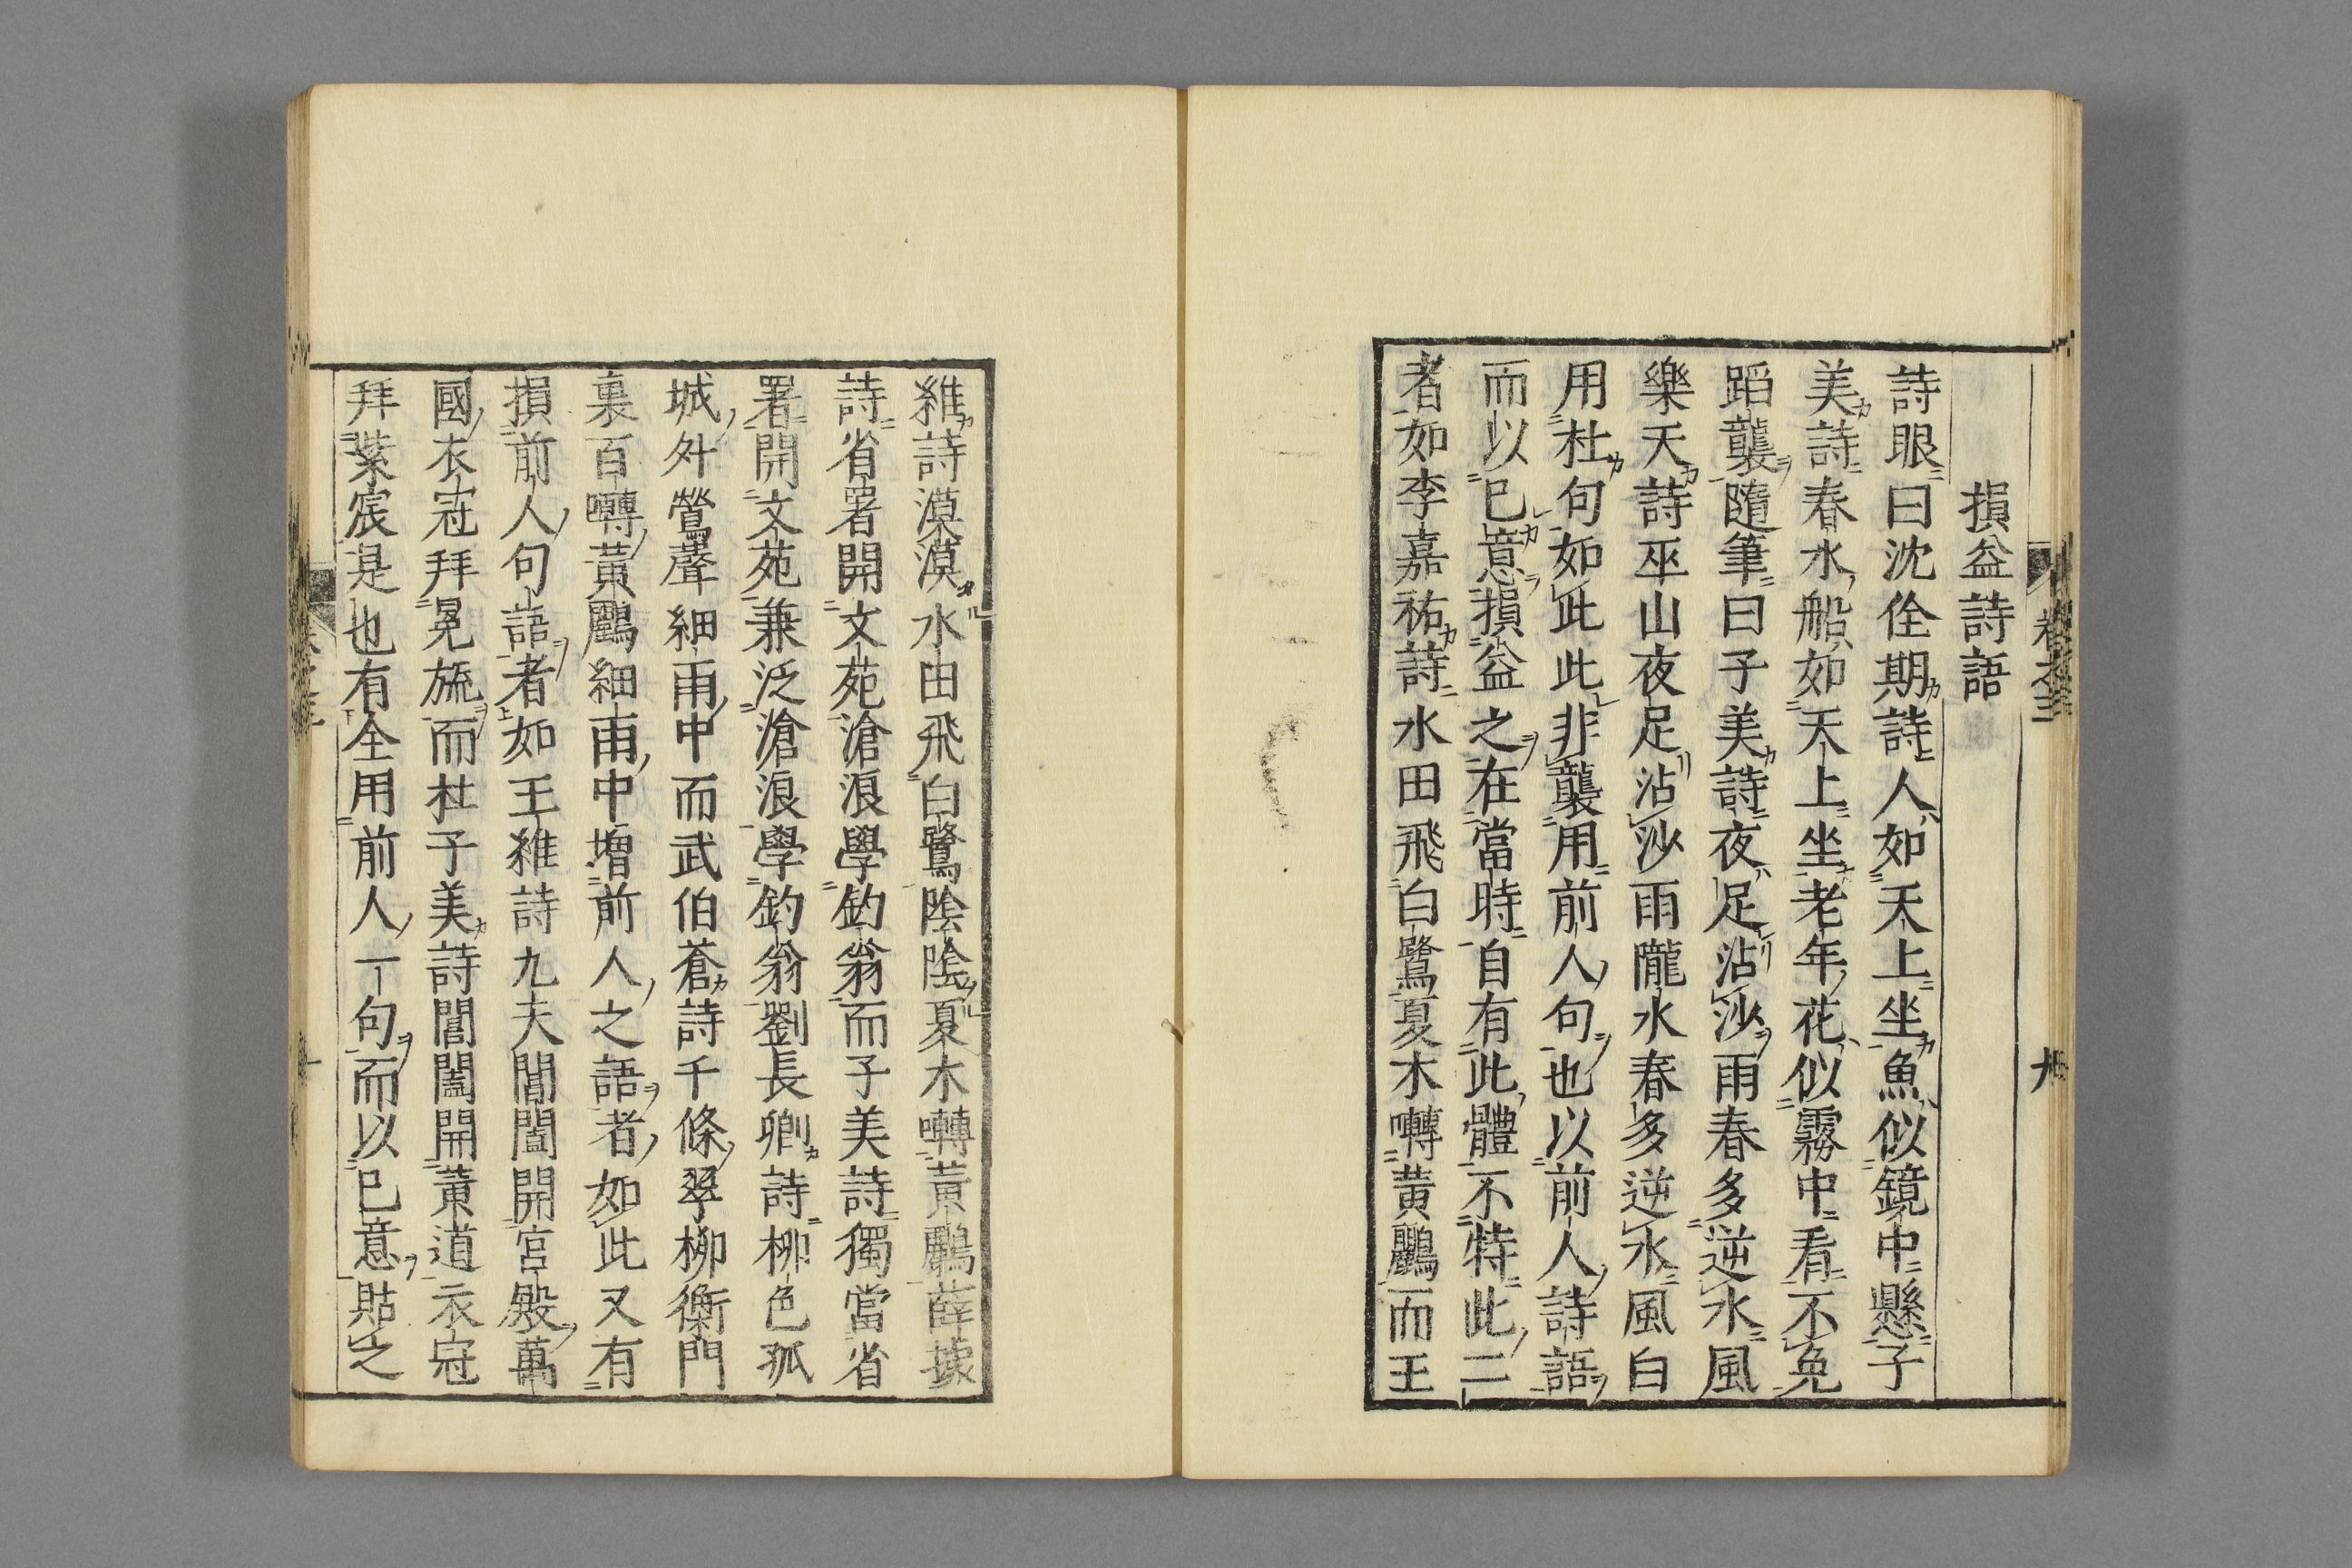 損益詩語
詩眼曰沈佺期詩人如天上坐魚似鏡中懸子
美詩春水船如天上坐老年花似霧中看不免
蹈襲隨筆曰子美詩夜足沾沙雨春多逆水風
樂天詩巫山夜足沾沙雨隴水春多逆水風白
用杜句如此此非襲用前人句也以前人詩語
而以已意損益之在當時自有此體不特此二
者如李嘉祐詩水田飛白鷺夏木囀黃鸝而王
維詩漠漠水田飛白鷺陰陰夏木囀黃鸝薛據
詩省署開文苑滄浪學釣翁而子美詩獨當省
署開文苑兼泛滄浪學釣翁劉長卿詩柳色孤
城外鶯聲細雨中而武伯蒼詩千條翠柳衡門
裏百囀黃鸝細雨中增前人之語者如此又有
損前人句語者如王維詩九天閶闔開宮殿萬
國衣冠拜冕旒而杜子美詩閶闔開黃道衣冠
拜紫宸是也有全用前人一句而以已意貼之